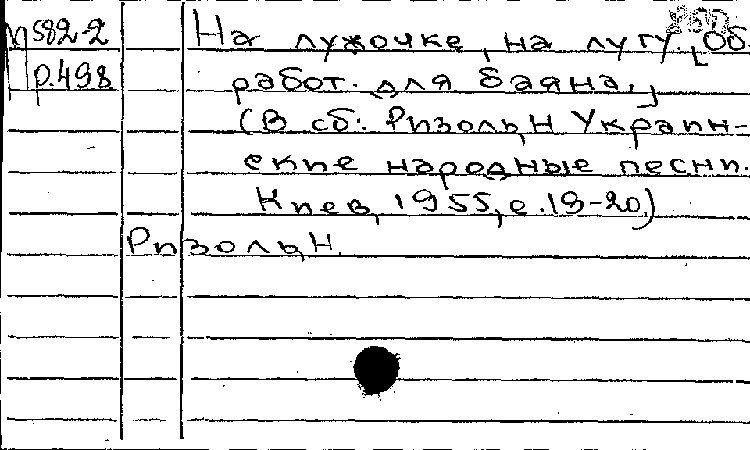 М 582-2
р.498
На лужочке, на лугу. [Об
работ. для баяна.]
(В сб.: Ризоль, Н Украин-
ские народные песни.
Киев, 1955, с. 19-20.)
Ризоль, Н.